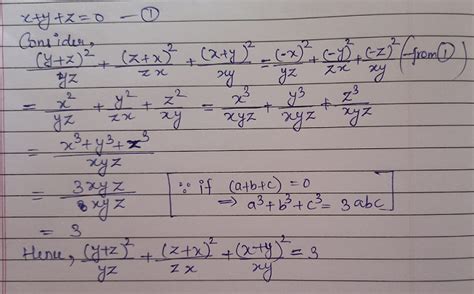 x+y+z=0 — ①
Consider,
(y+z)²/yz + (z+x)²/zx + (x+y)²/xy = (-x)²/yz + (-y)²/zx + (-z)²/xy (-from ①)
= x²/yz + y²/zx + z²/xy = x³/xyz + y³/xyz + z³/xyz
= x³+y³+z³/xyz
= 3xyz/xyz [∵ if (a+b+c)=0
⇒ a³+b³+c³ = 3abc]
= 3
Hence, (y+z)²/yz + (z+x)²/zx + (x+y)²/xy = 3